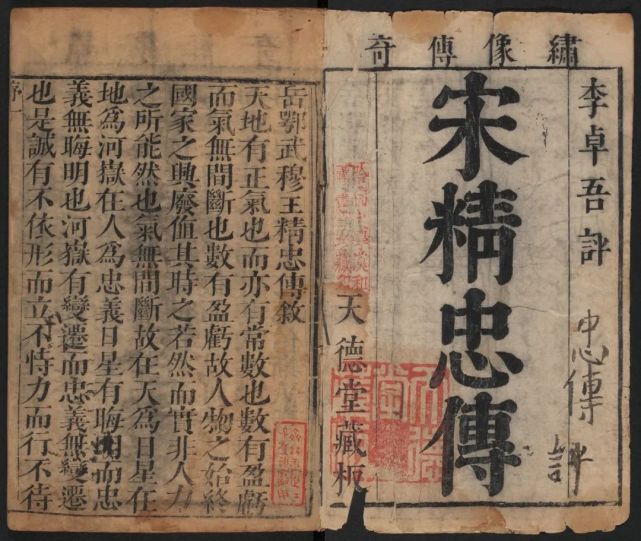 繡像傳奇
李卓吾評
宋精忠傳
天德堂藏板
忠傳
岳鄂武穆王精忠傳敘
天地有正氣也而亦有常數也數有盈虧
而氣無間斷也數有盈虧故人物之始終
國家之興廢值其時之若然而實非人力
之所能然也氣無間斷故在天爲日星在
地爲河嶽在人爲忠義日星有晦明而忠
義無晦明也河嶽有變遷而忠義無變遷
也是誠有不依形而立不恃力而行不待
序